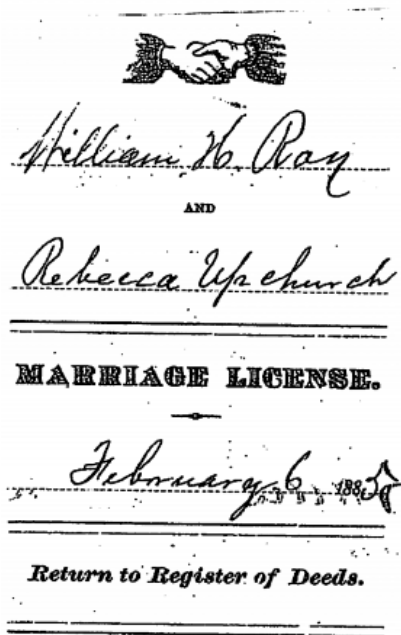 William H. Ray
AND
Rebecca Upchurch
MARRIAGE LICENSE.
February 6
Return to Register of Deeds.